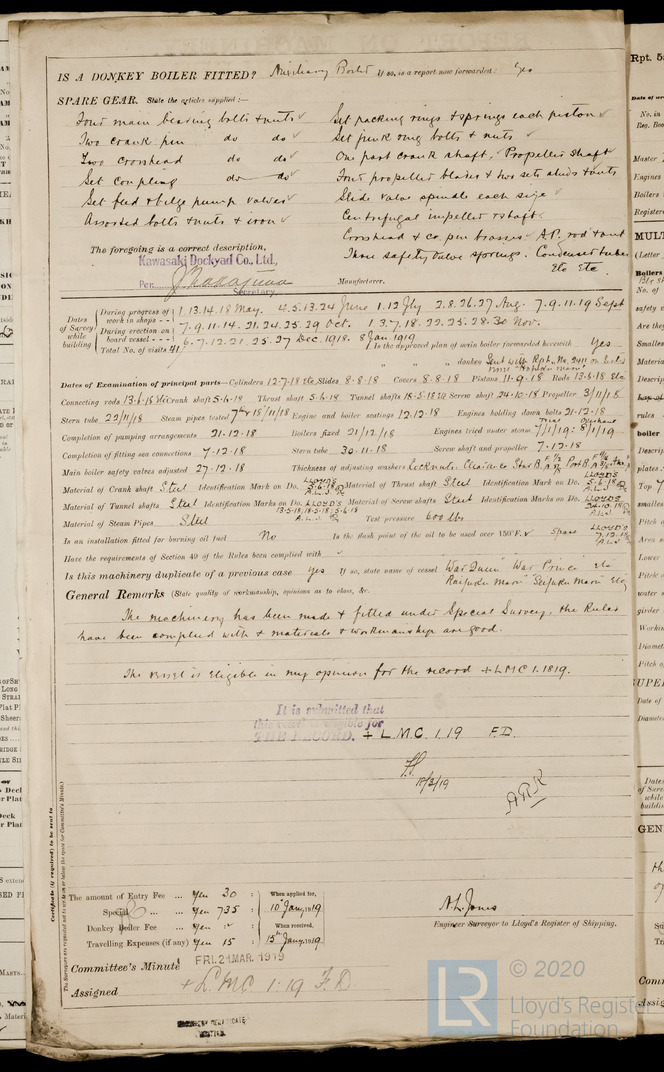 IS A DONKEY BOILER FITTED? Auxiliary Boiler If so, is a report now forwarded? Yes
SPARE GEAR. State the articles supplied:—
Four main bearing bolts & nuts ✓ Set packing rings & springs each piston ✓
Two crank pin do do ✓ Set junk ring bolts & nuts ✓
Two crosshead do do ✓ One part crank shaft, Propeller shaft
Set coupling do do ✓ Four propeller blades & two sets studs & nuts
Set feed & bilge pump valves ✓ Slide valve spindle each size ✓
Assorted bolts & nuts & iron ✓ Centrifugal impeller & shaft
Crosshead & c. pin brasses ✓ A.P. rod & nut
The foregoing is a correct description, Three safety valve springs. Condenser tubes
Kawasaki Dockyad Co., Ltd., Etc Etc
Per Secretary. Manufacturer.
Dates of Survey while building
During progress of work in shops - - 1. 13. 14. 18 May. 4. 5. 13. 24 June 1. 12 Jly 2. 8. 26. 27 Aug. 7. 9. 11. 19 Sept
During erection on board vessel - - - 7. 9. 11. 14. 21. 24. 25. 29 Oct. 1. 3. 7. 18. 22. 25. 28. 30 Nov.
Total No. of visits 41 6. 7. 12. 21. 25. 27 Dec. 1918. 8 Jan. 1919 Is the approved plan of main boiler forwarded herewith Yes
" " " donkey Sent with Rpt. No. 2411 on
Dates of Examination of principal parts—Cylinders 12.7.18 Etc Slides 8.8.18 Covers 8.8.18 Pistons 11.9.18 Rods 13.6.18 Etc
Connecting rods 13.6.18 Etc Crank shaft 5.6.18 Thrust shaft 5.6.18 Tunnel shafts 18.5.18 Etc Screw shaft 24.10.18 Propeller 3/11/18
Stern tube 22/11/18 Steam pipes tested 7th & 18/11/18 Engine and boiler seatings 12.12.18 Engines holding down bolts 21.12.18
Completion of pumping arrangements 21.12.18 Boilers fixed 21/12/18 Engines tried under steam 7/1/19: 8/1/19
Completion of fitting sea connections 7.12.18 Stern tube 30.11.18 Screw shaft and propeller 7.12.18
Main boiler safety valves adjusted 27.12.18 Thickness of adjusting washers Locknuts. Clearance
Material of Crank shaft Steel Identification Mark on Do. LLOYD'S 5.6.18 A.L.J. Material of Thrust shaft Steel Identification Mark on Do. LLOYD'S 5.6.18 A.L.J.
Material of Tunnel shafts Steel Identification Marks on Do. LLOYD'S 13.5.18: 18.5.18: 5.6.18 A.L.J. Material of Screw shafts Steel Identification Marks on Do. LLOYD'S 24.10.18 A.L.J.
Material of Steam Pipes Steel Test pressure 600 lbs
Is an installation fitted for burning oil fuel No Is the flash point of the oil to be used over 150°F. ✓ Spare LLOYD'S 7.12.18 A.L.J.
Have the requirements of Section 49 of the Rules been complied with ✓
Is this machinery duplicate of a previous case Yes If so, state name of vessel War Queen War Prince Etc
Raifuku Maru Seifuku Maru Etc
General Remarks (State quality of workmanship, opinions as to class, &c.
The machinery has been made & fitted under Special Survey, the Rules
have been complied with & materials & workmanship are good.
The vessel is eligible in my opinion for the record + LMC 1.1919.
It is submitted that
this vessel is eligible for
THE RECORD. + L.M.C. 1.19 F.D.
18/3/19
Certificate (if required) to be sent to
The Surveyors are requested not to write on or below the space for Committee's Minute.
The amount of Entry Fee ... Yen 30 : When applied for,
Special ... ... Yen 735 : 10th Jany. 1919
Donkey Boiler Fee ... Yen ✓ : When received,
Travelling Expenses (if any) Yen 15 : 15th Jany. 1919
A.L. Jones
Engineer Surveyor to Lloyd's Register of Shipping.
Committee's Minute FRI. 21 MAR. 1919
Assigned + L.M.C. 1.19 F.D.
LR © 2020
Lloyd's Register
Foundation
Rpt. 5